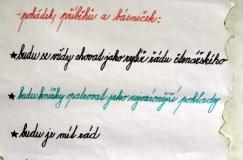 - pohádek, příběhů a básniček:
★ budu se vždy chovat jako rytíř řádu čtenářského
★ budu knížky opatrovat jako nejvzácnější poklady
★ budu je mít rád